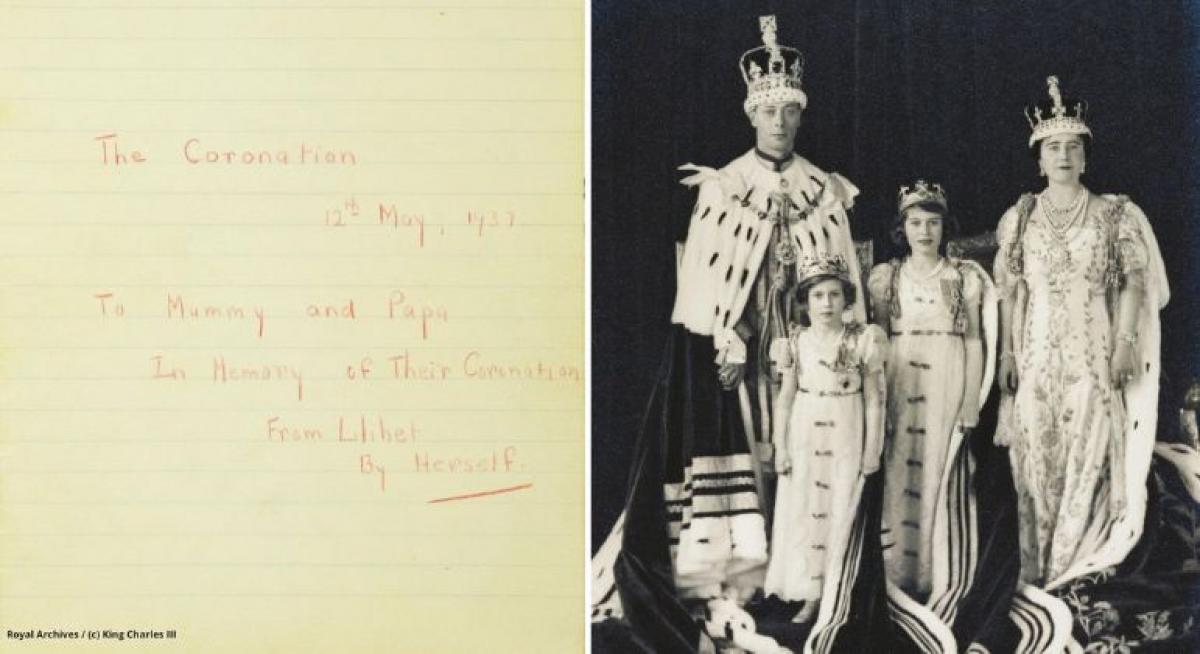 The Coronation
12th May, 1937
To Mummy and Papa
In Memory of Their Coronation
From Lilibet
By Herself.
Royal Archives / (c) King Charles III